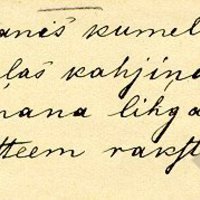 anes kumel
las kahjiņa
ana lihga
tteem rakst